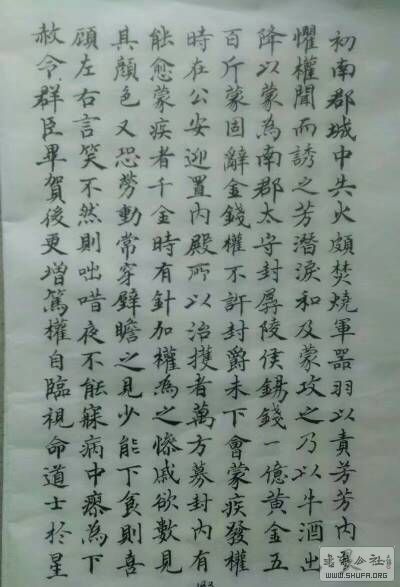 初南郡城中失火頗焚燒軍器羽以責芳芳內
懼權聞而誘之芳潛淚和及蒙攻之乃以牛酒出
降以蒙為南郡太守封孱陵侯錫錢一億黃金五
百斤蒙固辭金錢權不許封爵未下會蒙疾發權
時在公安迎置內殿所以治擭者萬方募封內有
能愈蒙疾者千金時有針加權為之慘戚欲數見
其顏色又恐勞動常穿壁瞻之見少能下食則喜
顧左右言笑不然則咄唶夜不能寐病中瘳為下
赦令群臣畢賀後更增篤權自臨視命道士於星
WWW.SHUFA.ORG